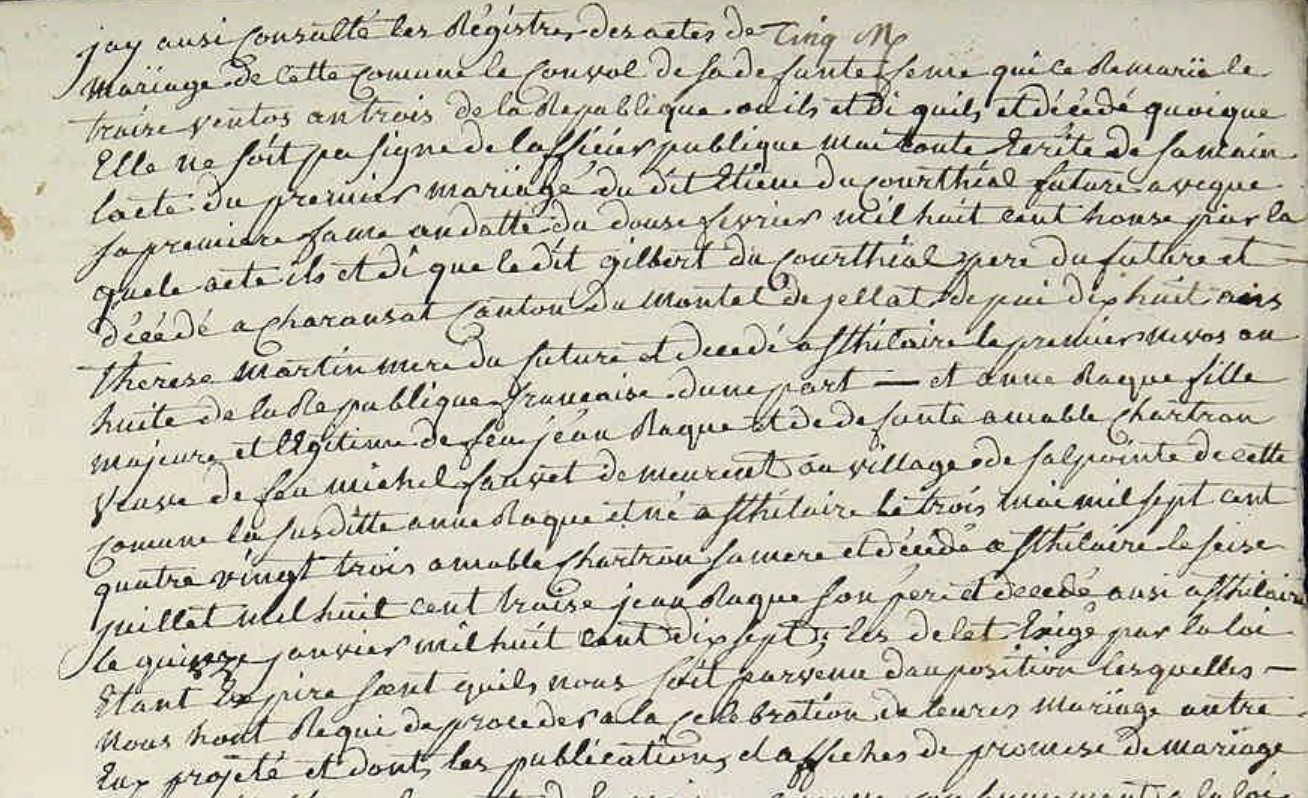 jay ausi Consulté les Régistres des actes de Cinq M
mariage de cette Comune le Convol de sa defunte feme qui ce Remarie le
traire ventos an trois de la Republique ou ils et Di quils et décédé quoique
Elle ne soit pa signe de lofficier publique mai toute Ecrite de sa main
lacte du premier mariage du dit Etiene du Courthial future aveque
sa premiere fame an datte du douse fevrier mil huit cent honse par la
quele acte ils et di que le dit gilbert du Courthial pere du future et
décédé a Charansat Canton du Montel de jellat depui dix huit ans
therese martin mere du future et decedé a st hilaire le premier nivos an
huite de la Republique francaise dune part — et anne Raque fille
majeure et légitime de feu jean Raque et de defunte amable Chartron
veuve de feu michel fauvet demeurent au village de salpointe de cette
Comune la susditte anne Raque et né a st hilaire le trois mai mil sept cent
quatre vingt trois amable Chartron sa mere et décédé a st hilaire le seise
juillet mil huit cent traise jean Raque son pere et decedé ausi a st hilaire
le quinze janvier mil huit cent dix sept, les delet Exigé par la loi
Etant Expire sent quils nous soit parvenu dauposition lesquelles —
nous hont Requi de proceder a la Celebration de leures mariage antre
Eux projeté et dont les publications daffiches de promese de mariage